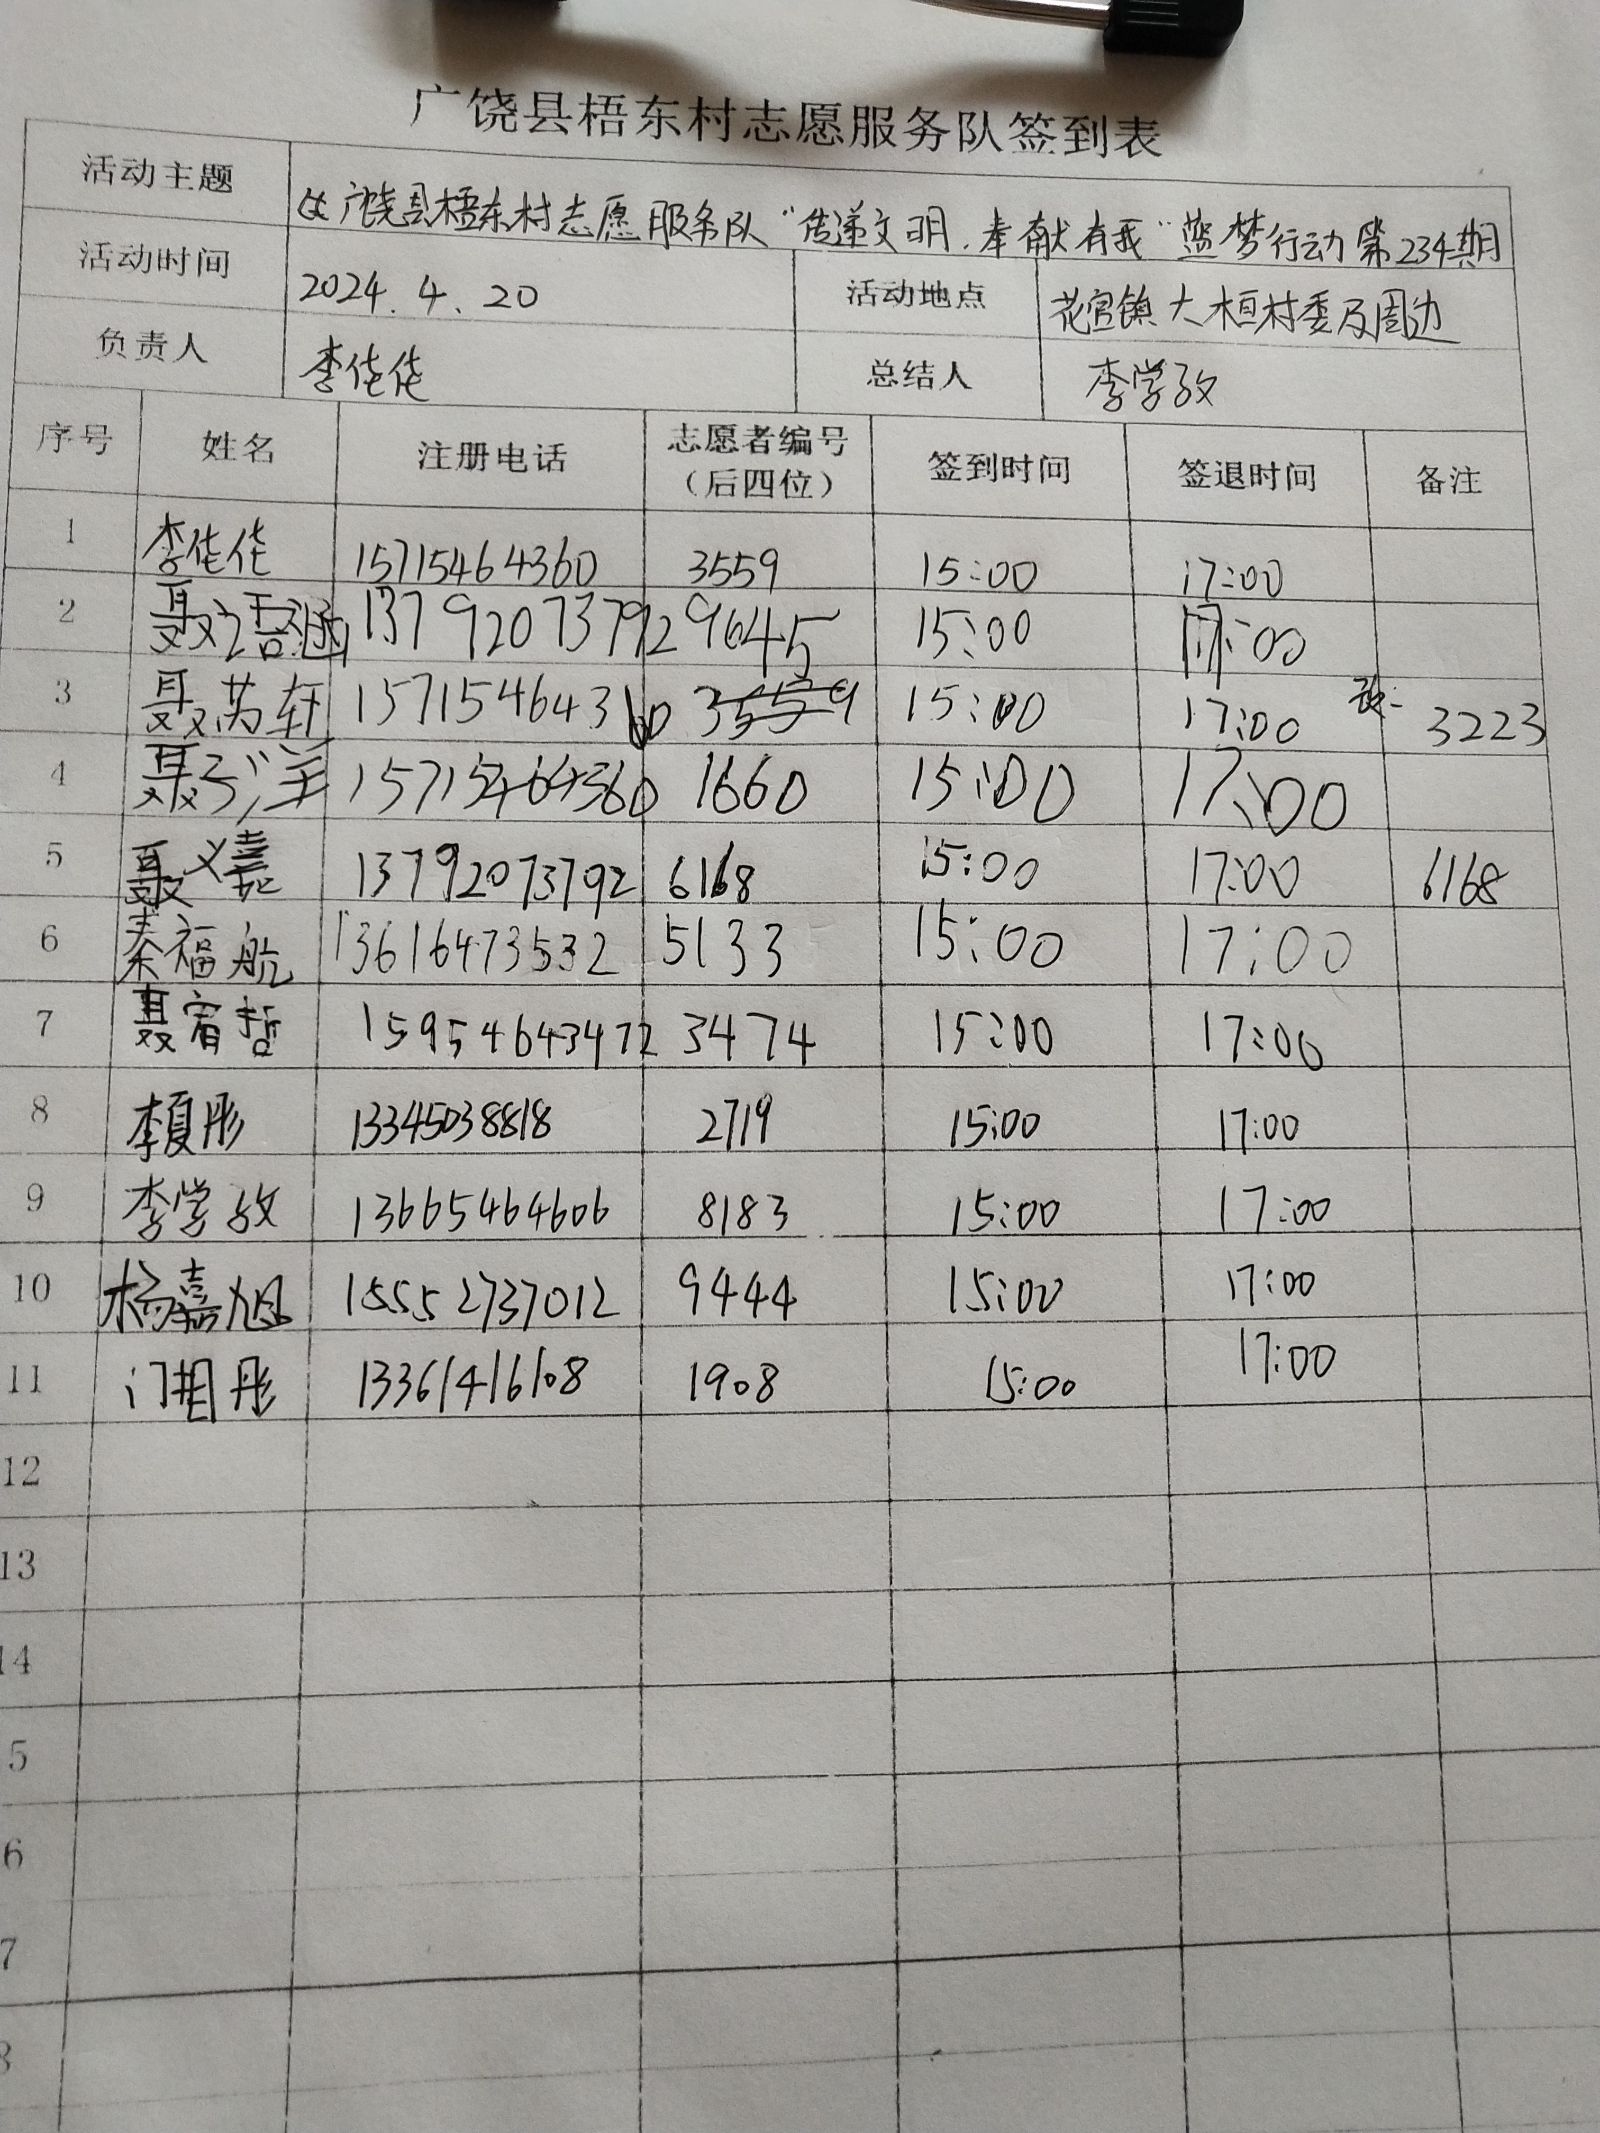 广饶县梧东村志愿服务队签到表
活动主题 广饶县梧东村志愿服务队“传递文明,奉献有我”蓝梦行动第234期
活动时间 2024.4.20 活动地点 花官镇大桓村委及周边
负责人 李佬佬 总结人 李学孜
序号 姓名 注册电话 志愿者编号(后四位) 签到时间 签退时间 备注
1 李佬佬 15715464360 3559 15:00 17:00
2 聂语涵 13792073792 9645 15:00 17:00
3 聂苈轩 15715464360 3559 15:00 17:00 3223
4 聂子洋 15715464360 1660 15:00 17:00
5 聂义嘉 13792073792 6168 15:00 17:00 6168
6 秦福航 13616473532 5133 15:00 17:00
7 聂宥哲 15954643472 3474 15:00 17:00
8 李夏彤 13345038818 2719 15:00 17:00
9 李学孜 13665464606 8183 15:00 17:00
10 杨嘉旭 15552737012 9444 15:00 17:00
11 门彤 13361416108 1908 15:00 17:00
12
13
14
5
6
7
8